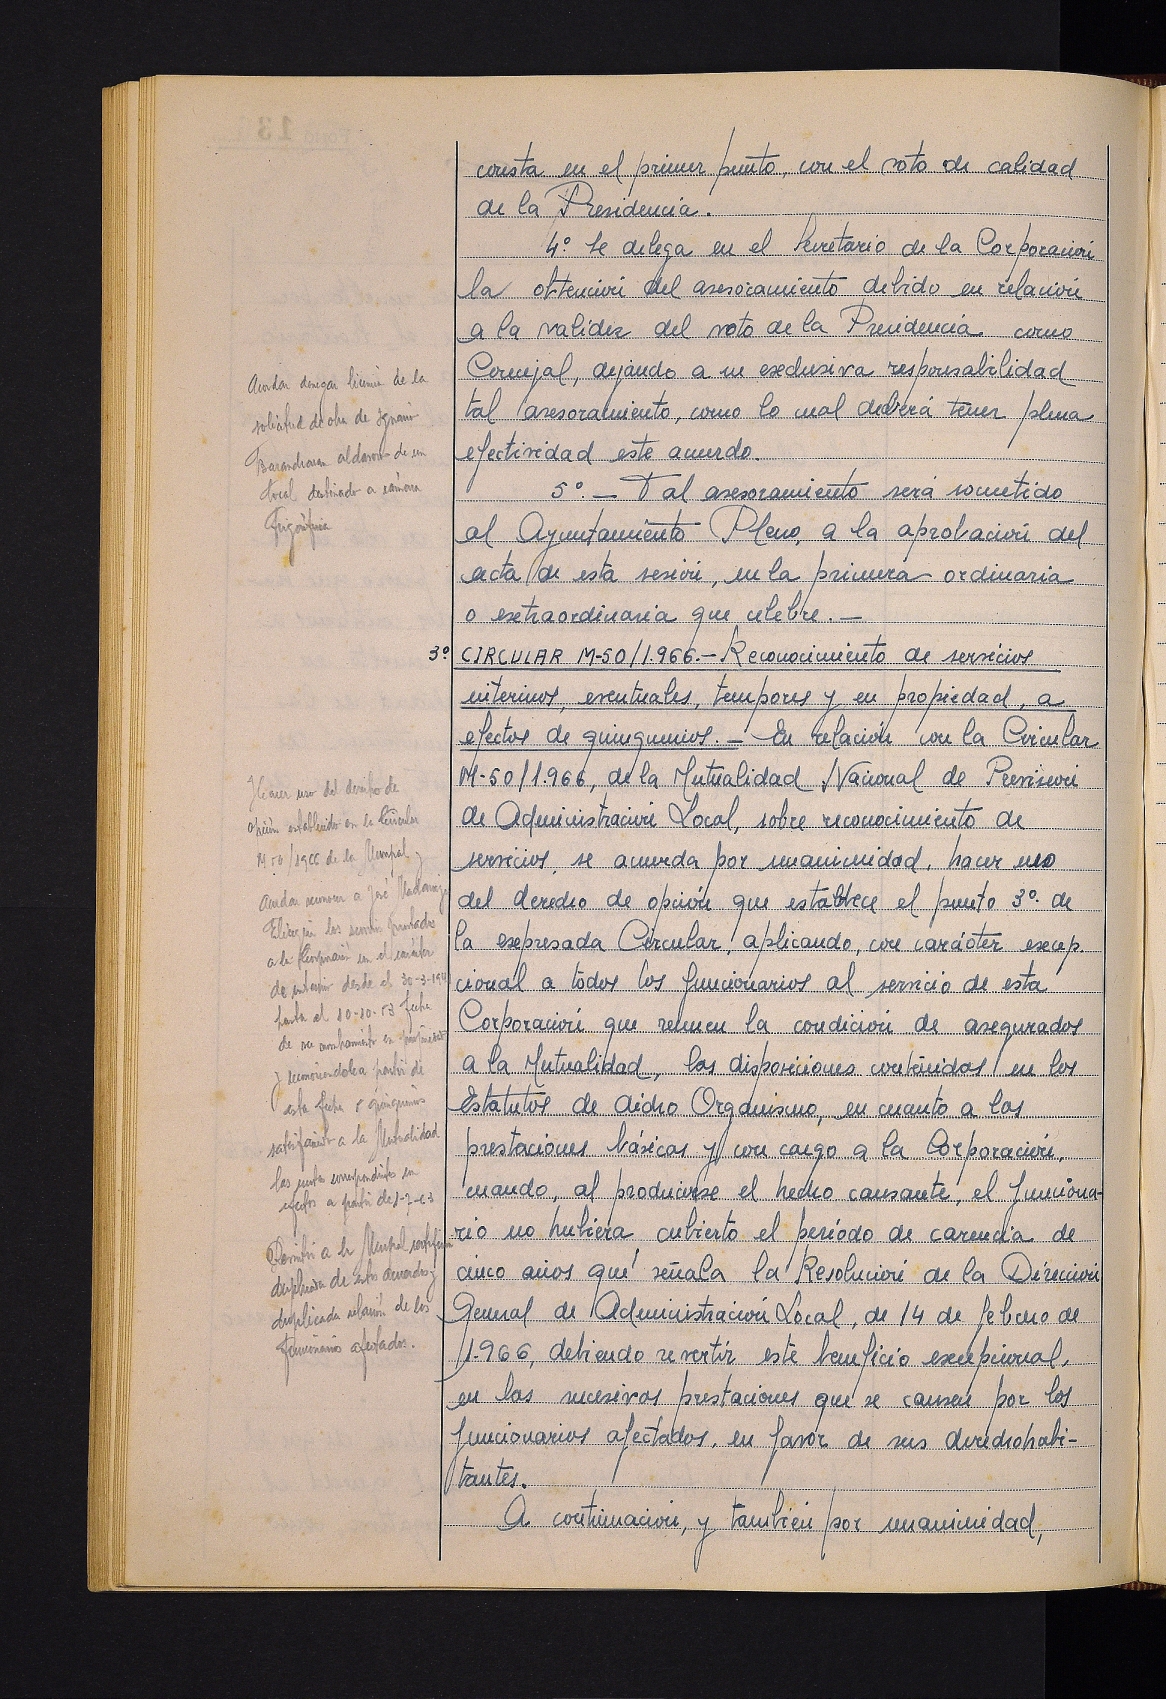 consta en el primer punto, con el voto de calidad
de la Presidencia.
4º. Se delega en el Secretario de la Corporación
la obtención del asesoramiento debido en relación
a la validez del voto de la Presidencia como
Concejal, dejando a su exclusiva responsabilidad
tal asesoramiento, como lo cual deberá tener plena
efectividad este acuerdo.
5º.— Tal asesoramiento será sometido
al Ayuntamiento Pleno, a la aprobación del
acta de esta sesión, en la primera ordinaria
o extraordinaria que celebre.—
3º CIRCULAR M-50/1.966.— Reconocimiento de servicios
interinos, eventuales, temporeros y en propiedad, a
efectos de quinquenios.— En relación con la Circular
M-50/1.966, de la Mutualidad Nacional de Previsión
de Administración Local, sobre reconocimiento de
servicios, se acuerda por unanimidad, hacer uso
del derecho de opción que establece el punto 3º. de
la expresada Circular, aplicando, con carácter excep-
cional a todos los funcionarios al servicio de esta
Corporación que reunen la condición de asegurados
a la Mutualidad, las disposiciones contenidas en los
Estatutos de dicho Organismo, en cuanto a las
prestaciones básicas y con cargo a la Corporación,
cuando, al producirse el hecho causante, el funciona-
rio no hubiera cubierto el período de carencia de
cinco años que señala la Resolución de la Dirección
General de Administración Local, de 14 de febrero de
1.966, debiendo revertir este beneficio excepcional,
en las sucesivas prestaciones que se causen por los
funcionarios afectados, en favor de sus derechohabi-
tantes.
A continuación, y también por unanimidad,
Acordar denegar licencia de la
solicitud de obra de Ignacio
Barandiaran Aldasoro de un
local destinado a cámara
Frigorífica
Hacer uso del derecho de
opción establecido en la Circular
M-50/1966 de la Munpal y
Acordar reconocer a José Madariaga
los servicios prestados
a la Corporación en el carácter
de interino desde el 30-3-194
hasta el 10-10-53 fecha
de su nombramiento en propiedad
y reconociendole a partir de
esta fecha 5 quinquenios
a la Mutualidad
las cuotas correspondientes en
efectos a partir de 1-7-63
Remitir a la Munpal certificación
duplicada de estos acuerdos y
duplicada relación de los
funcionarios afectados.